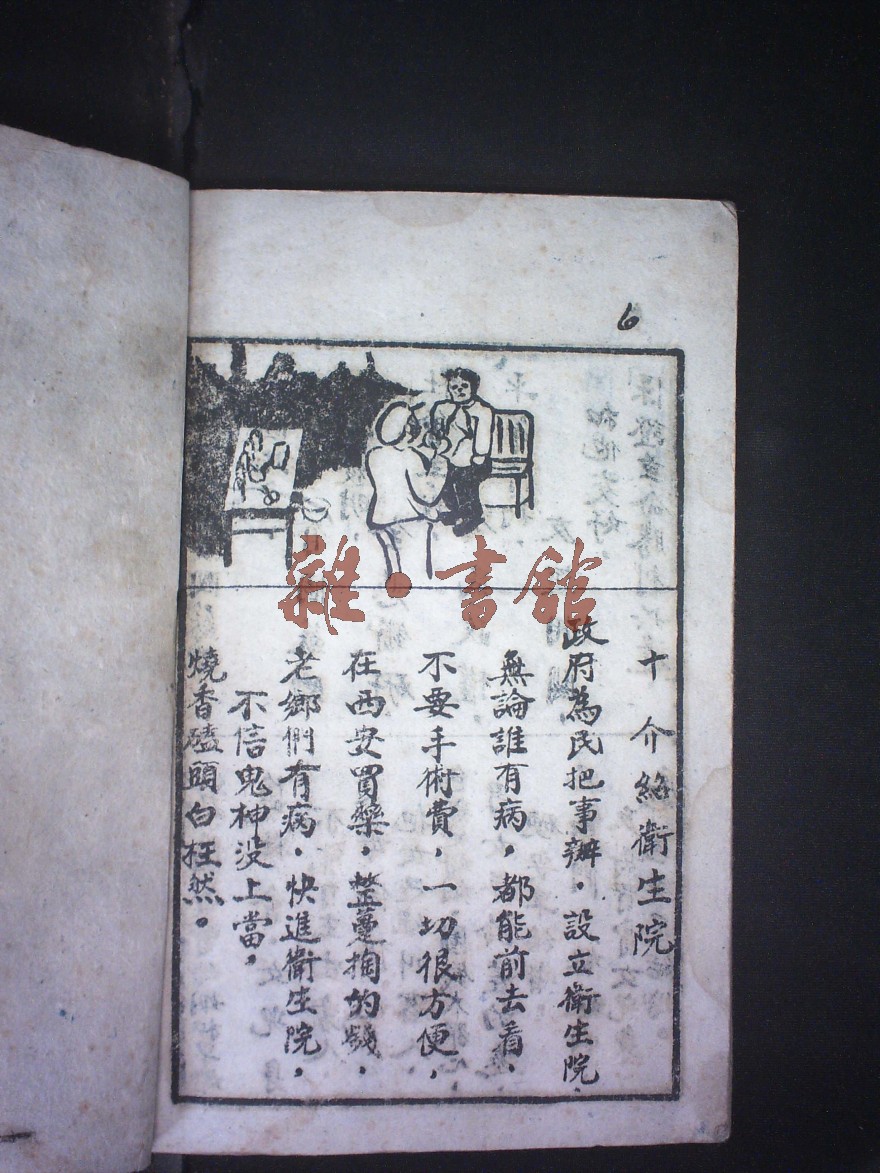 6
雜·書館
十 介紹衛生院
政府為民把事辦,設立衛生院,
無論誰有病,都能前去看,
不要手術費,一切很方便,
在西安買藥,整躉掏的錢,
老鄉們有病,快進衛生院,
不信鬼神没上當,
燒香磕頭白枉然。